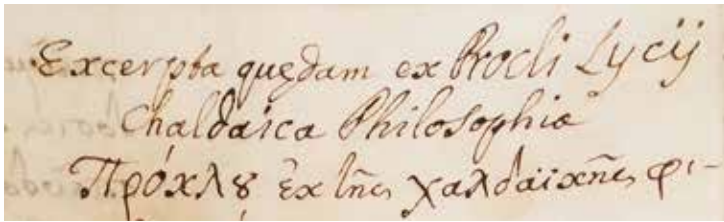 Excerpta quędam ex Procli Lycij
Chaldaica Philosophia
Πρόκλȣ ἐκ τῆς χαλδαϊκῆς φι-